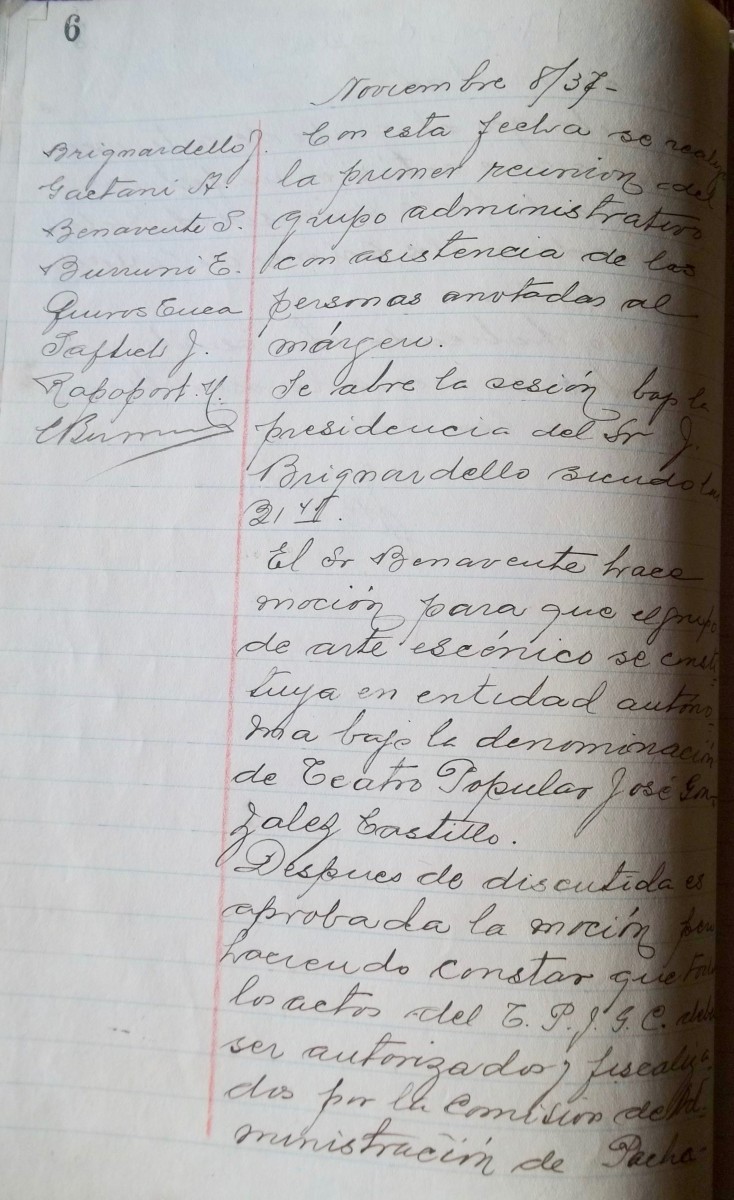 6
Noviembre 8/37-
Brignardello J.
Gaetani A.
Benavente S.
Burruni E.
Quiros Cuea
J.
Rapaport M.
Con esta fecha se realiza
la primer reunion del
grupo administrativo
con asistencia de las
personas anotadas al
márgen.
Se abre la sesión bajo la
presidencia del Sr J.
Brignardello siendo las
21 y
El Sr Benavente hace
moción para que el grupo
de arte escénico se consti-
tuya en entidad autóno-
ma bajo la denominación
de Teatro Popular José Gon-
zalez Castillo.
Despues de discutida es
aprobada la moción pero
haciendo constar que todos
los actos del T. P. J. G. C. deben
ser autorizados y fiscaliza-
dos por la Comisión de Ad-
ministración de Pacha-